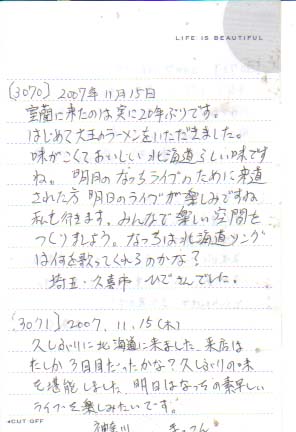 LIFE IS BEAUTIFUL
[3070] 2007年11月15日
室蘭に来たのは実に20年ぶりです。
はじめて大王のラーメンをいただきました。
味がこくておいしい北海道らしい味です
ね。明日のなっちライブのために来道
された方 明日のライブが楽しみですね
私も行きます。みんなで楽しい空間を
つくりましょう。なっちは北海道ソング
は何を歌ってくれるのかな?
埼玉・久喜市 ひでさんでした。
[3071] 2007. 11. 15 (木)
久しぶりに北海道に来ました。来店は
たしか3日目だったかな?久しぶりの味
を堪能しました。明日はなっちの素晴しい
ライブを楽しみたいです。
CUT OFF 神奈川